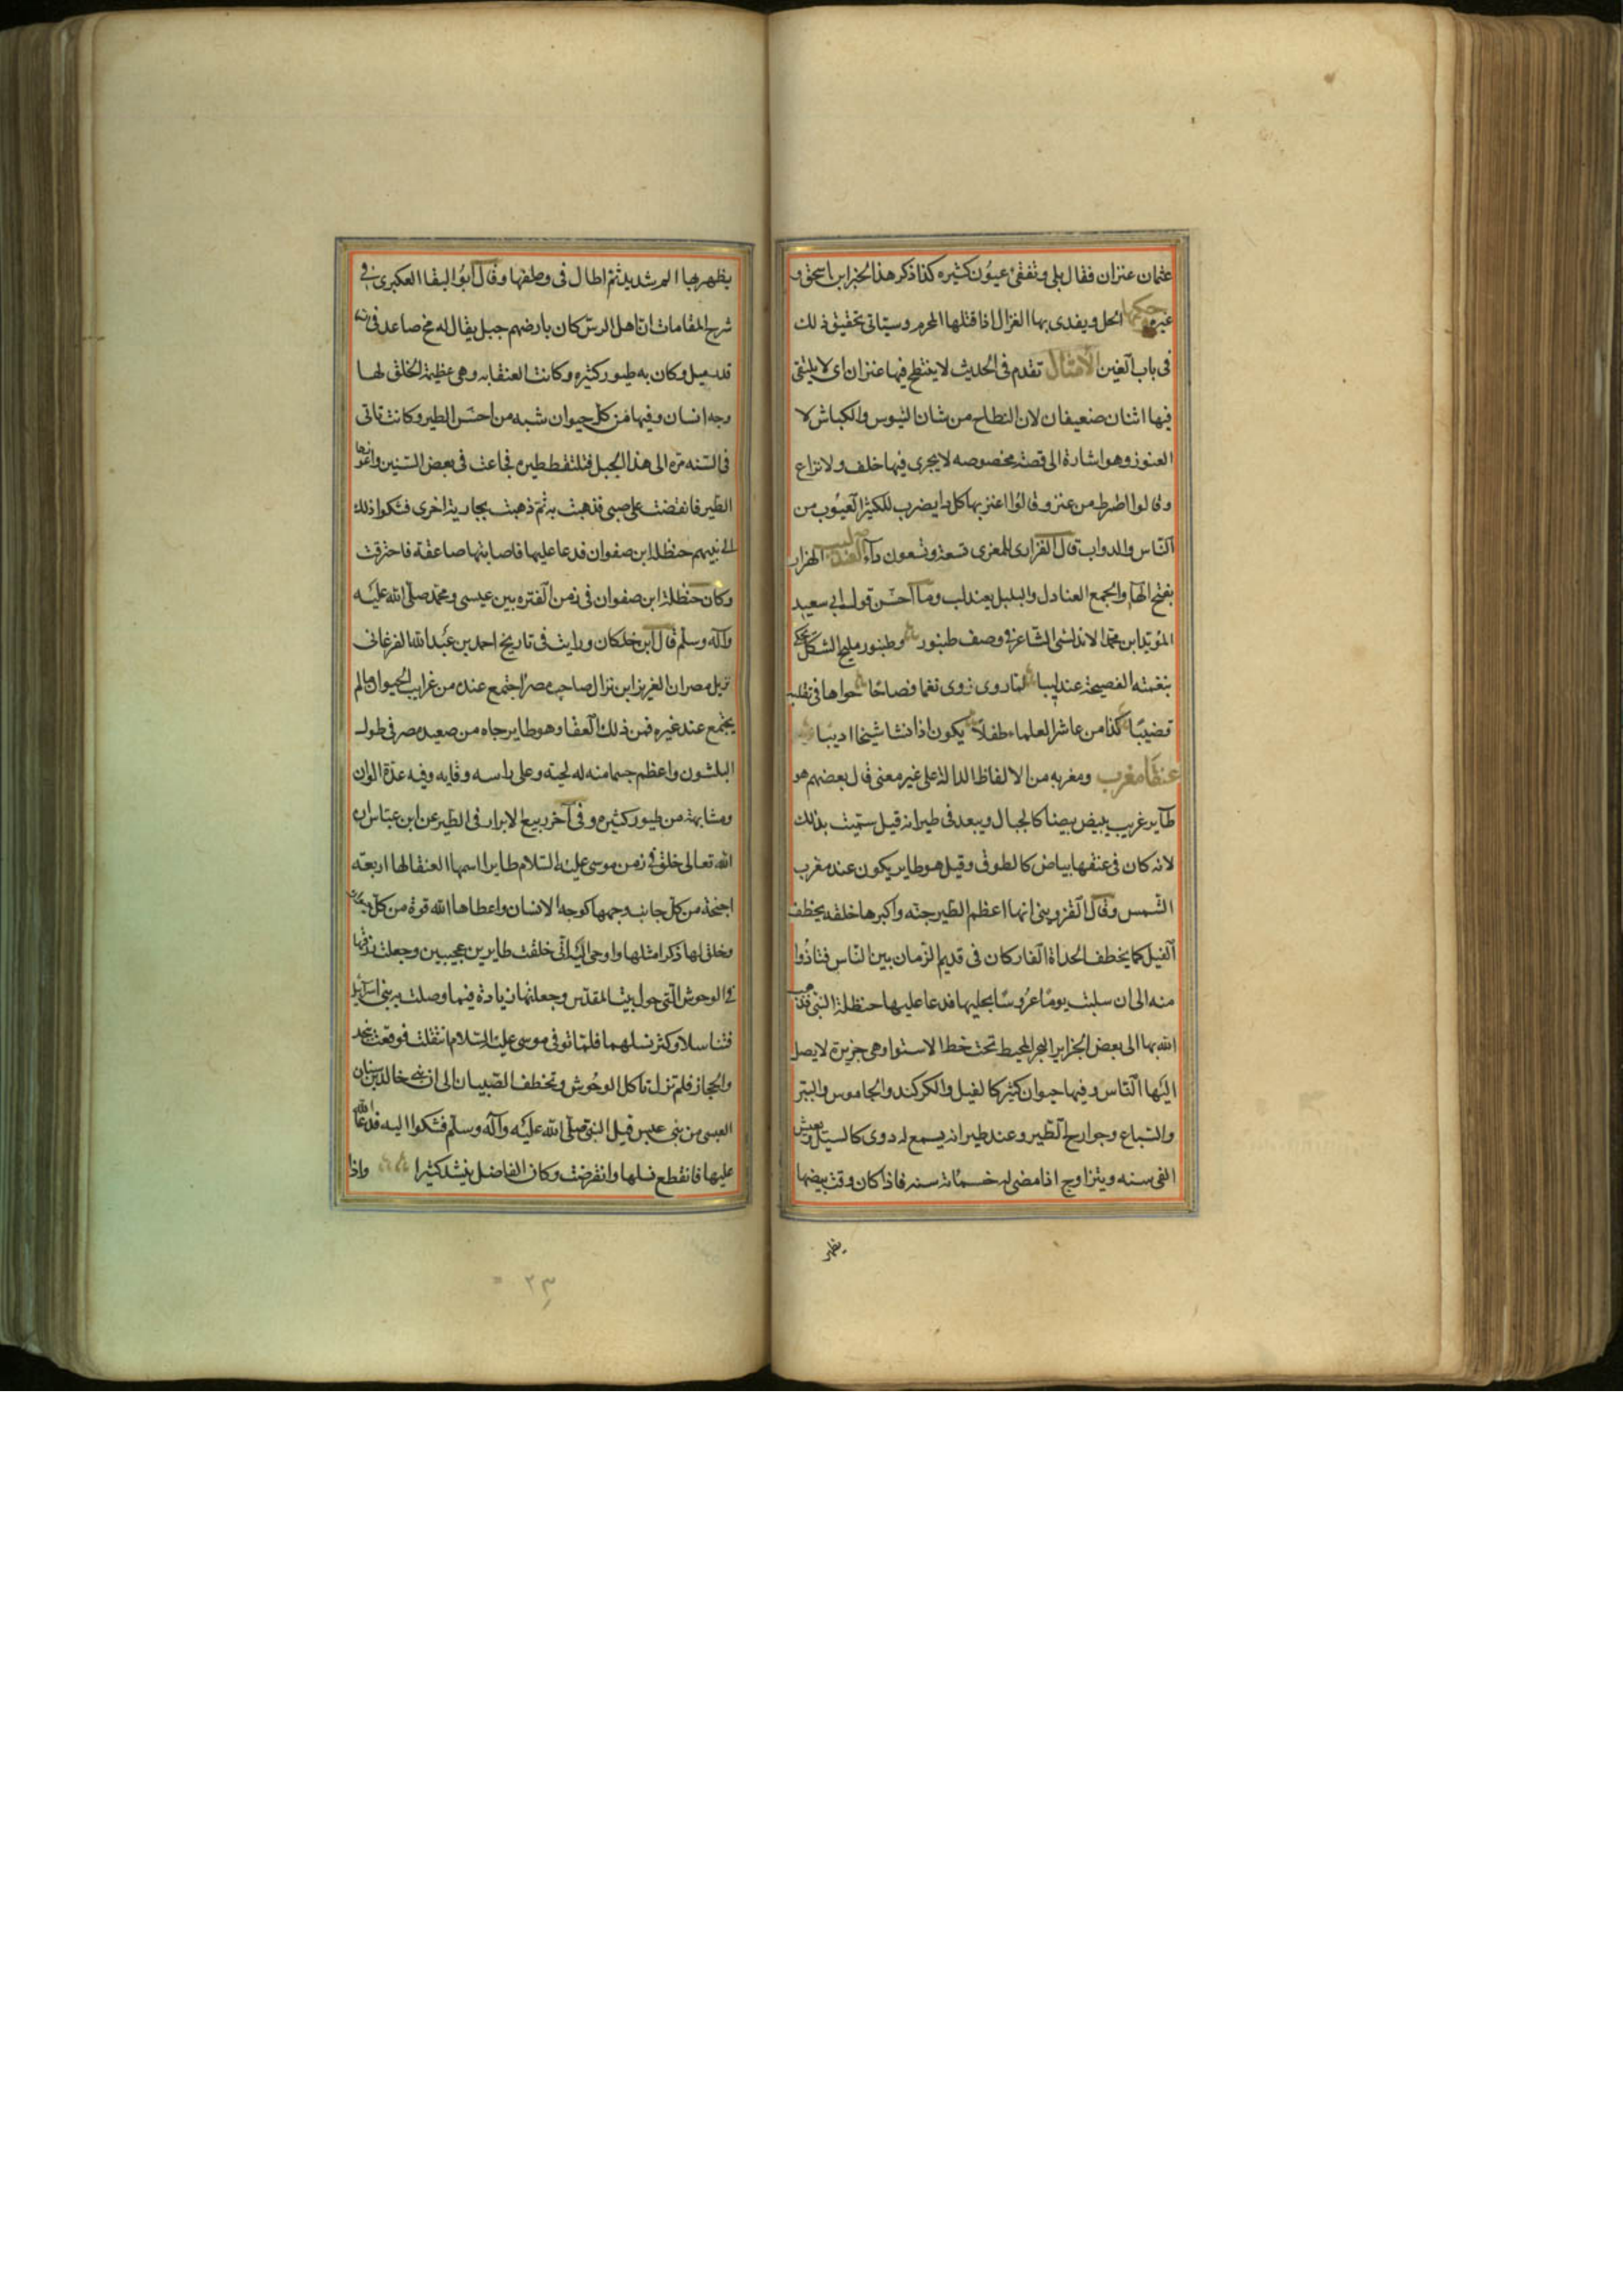 عثمان عنزان فقال بلى وتفقى عيون كثيره كذا ذكر هذا الخبر ابن اسحق و
غيره حكمها الحل ويفدى بها الغزال اذا قتلها المحرم وسياتى تحقيق ذلك
فى باب الغين الامثال تقدم فى الحديث لا ينتطح فيها عنزان اى لا يلتقى
فيها اثنان ضعيفان لان النطاح من شان التيوس والكباش لا
العنوز وهو اشارة الى قصة مخصوصه لا يجرى فيها خلف ولا نزاع
وقالوا اضرط من عنز وقالوا اعنز بها كل دا يضرب للكثير العيوب من
الناس والدواب قال الفزارى للمعزى تسعة وتسعون داء العندليب الهزار
بفتح الهاء والجمع العنادل والبلبل يعندل وما احسن قول ابى سعيد
المويد ابن محمد الاندلسى الشاعر فى وصف طنبور وطنبور مليح الشكل يحكى
بنغمته الفصيحة عندليبا لما روى ذوى نغما فصاحا حواها فى تقلبه
قضيبا كذا من عاشر العلماء طفلا يكون اذا نشا شيخا اديبا
عنقا مغرب ومغربه من الالفاظ الدالة على غير معنى قال بعضهم هو
طاير غريب يبيض بيضا كالجبال ويبعد فى طيرانه قيل سميت بذلك
لانه كان فى عنقها بياض كالطوق وقيل هو طاير يكون عند مغرب
الشمس وقال القزوينى انها اعظم الطير جثه واكبرها خلقه يخطف
الفيل كما يخطف الحداة الفار كان فى قديم الزمان بين الناس فتاذوا
منه الى ان سلبت يوما عروسا بحليها فدعا عليها حنظلة النبى فذهب
الله بها الى بعض الجزاير البحر المحيط تحت خط الاستوا وهى جزيرة لا يصل
اليها الناس وفيها حيوان كثير كالفيل والكركند والجاموس والببر
والسباع وجوارح الطير وعند طيرانه يسمع له دوى كالسيل ويعيش
الفى سنه ويتزاوج اذا مضى له خمسمائة سنه فاذا كان وقت بيضها
يظهر
يظهر بها الم شديد ثم اطال فى وصفها وقال ابو البقا العكبرى فى
شرح المقامات ان اهل الرس كان بارضهم جبل يقال له مخ صاعد فى السماء
قدر ميل وكان به طيور كثيره وكانت العنقا به وهى عظيمة الخلق لها
وجه انسان وفيها من كل حيوان شبه من احسن الطير وكانت تاتى
فى السنه مره الى هذا الجبل فتلتقط طيره فجاعت فى بعض السنين واعوزها
الطير فانقضت على صبى فذهبت به ثم ذهبت بجارية اخرى فشكوا ذلك
الى نبيهم حنظلة ابن صفوان فدعا عليها فاصابتها صاعقة فاحترقت
وكان حنظلة ابن صفوان فى زمن الفتره بين عيسى ومحمد صلى الله عليه
واله وسلم قال ابن خلكان ورايت فى تاريخ احمد بن عبد الله الفرغانى
نزيل مصر ان العزيز ابن نزال صاحب مصر اجتمع عنده من غرايب الحيوان ما لم
يجتمع عند غيره فمن ذلك العنقا وهو طاير جاه من صعيد مصر فى طول
البلشون واعظم جسما منه له لحية وعلى راسه وقايه وفيه عدة الوان
ومشابهة من طيور كثيره وفى آخر ربيع الابرار فى الطير عن ابن عباس ان
الله تعالى خلق فى زمن موسى عليه السلام طايرا اسمها العنقا لها اربعة
اجنحة من كل جانب وجهها كوجه الانسان واعطاها الله قوة من كل
وخلق لها ذكرا مثلها واوحى اليه انى خلقت طايرين عجيبين وجعلت رزقهما
فى الوحوش التى حول بيت المقدس وجعلتهما زيادة فيما وصلت به بنى اسرائيل
فتناسلا وكثر نسلهما فلما توفى موسى عليه السلام انتقلت فوقعت بنجد
والحجاز فلم تزل تاكل الوحوش وتخطف الصبيان الى ان نبى خالد بن سنان
العبسى من بنى عبس قبل النبى صلى الله عليه وآله وسلم فشكوا اليه فدعا الله
عليها فانقطع نسلها وانقرضت وكان الفاضل ينشد كثيرا واذا
٢٣